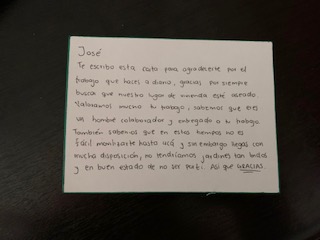 José
Te escribo esta carta para agradecerte por el
trabajo que haces a diario, gracias por siempre
buscar que nuestro lugar de vivienda esté aseado.
Valoramos mucho tu trabajo, sabemos que eres
un hombre colaborador y entregado a tu trabajo.
También sabemos que en estos tiempos no es
fácil movilizarte hasta acá y sin embargo llegas con
mucha disposición, no tendríamos jardines tan lindos
y en buen estado de no ser por ti. Así que GRACIAS.